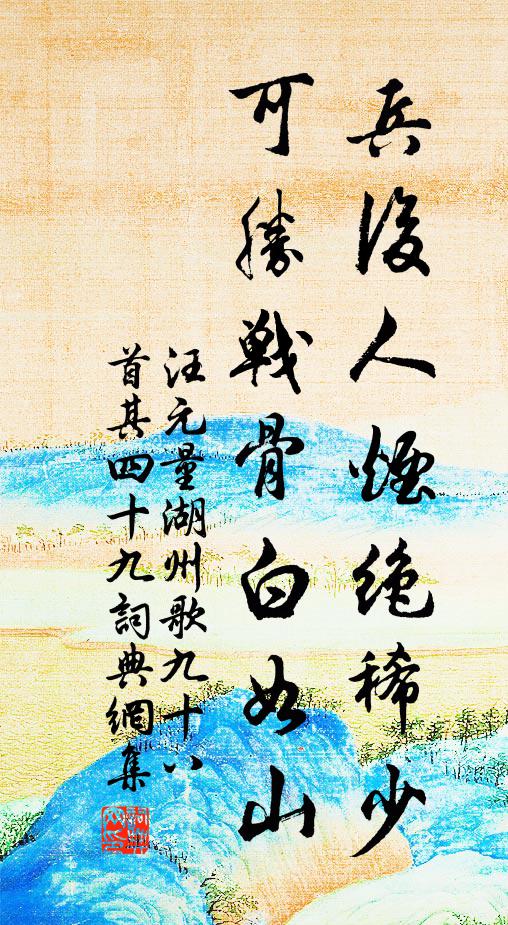 兵後人煙絶稀少
可勝戰骨白如山
汪元量湖州歌九十八
首其四十九詞典網集